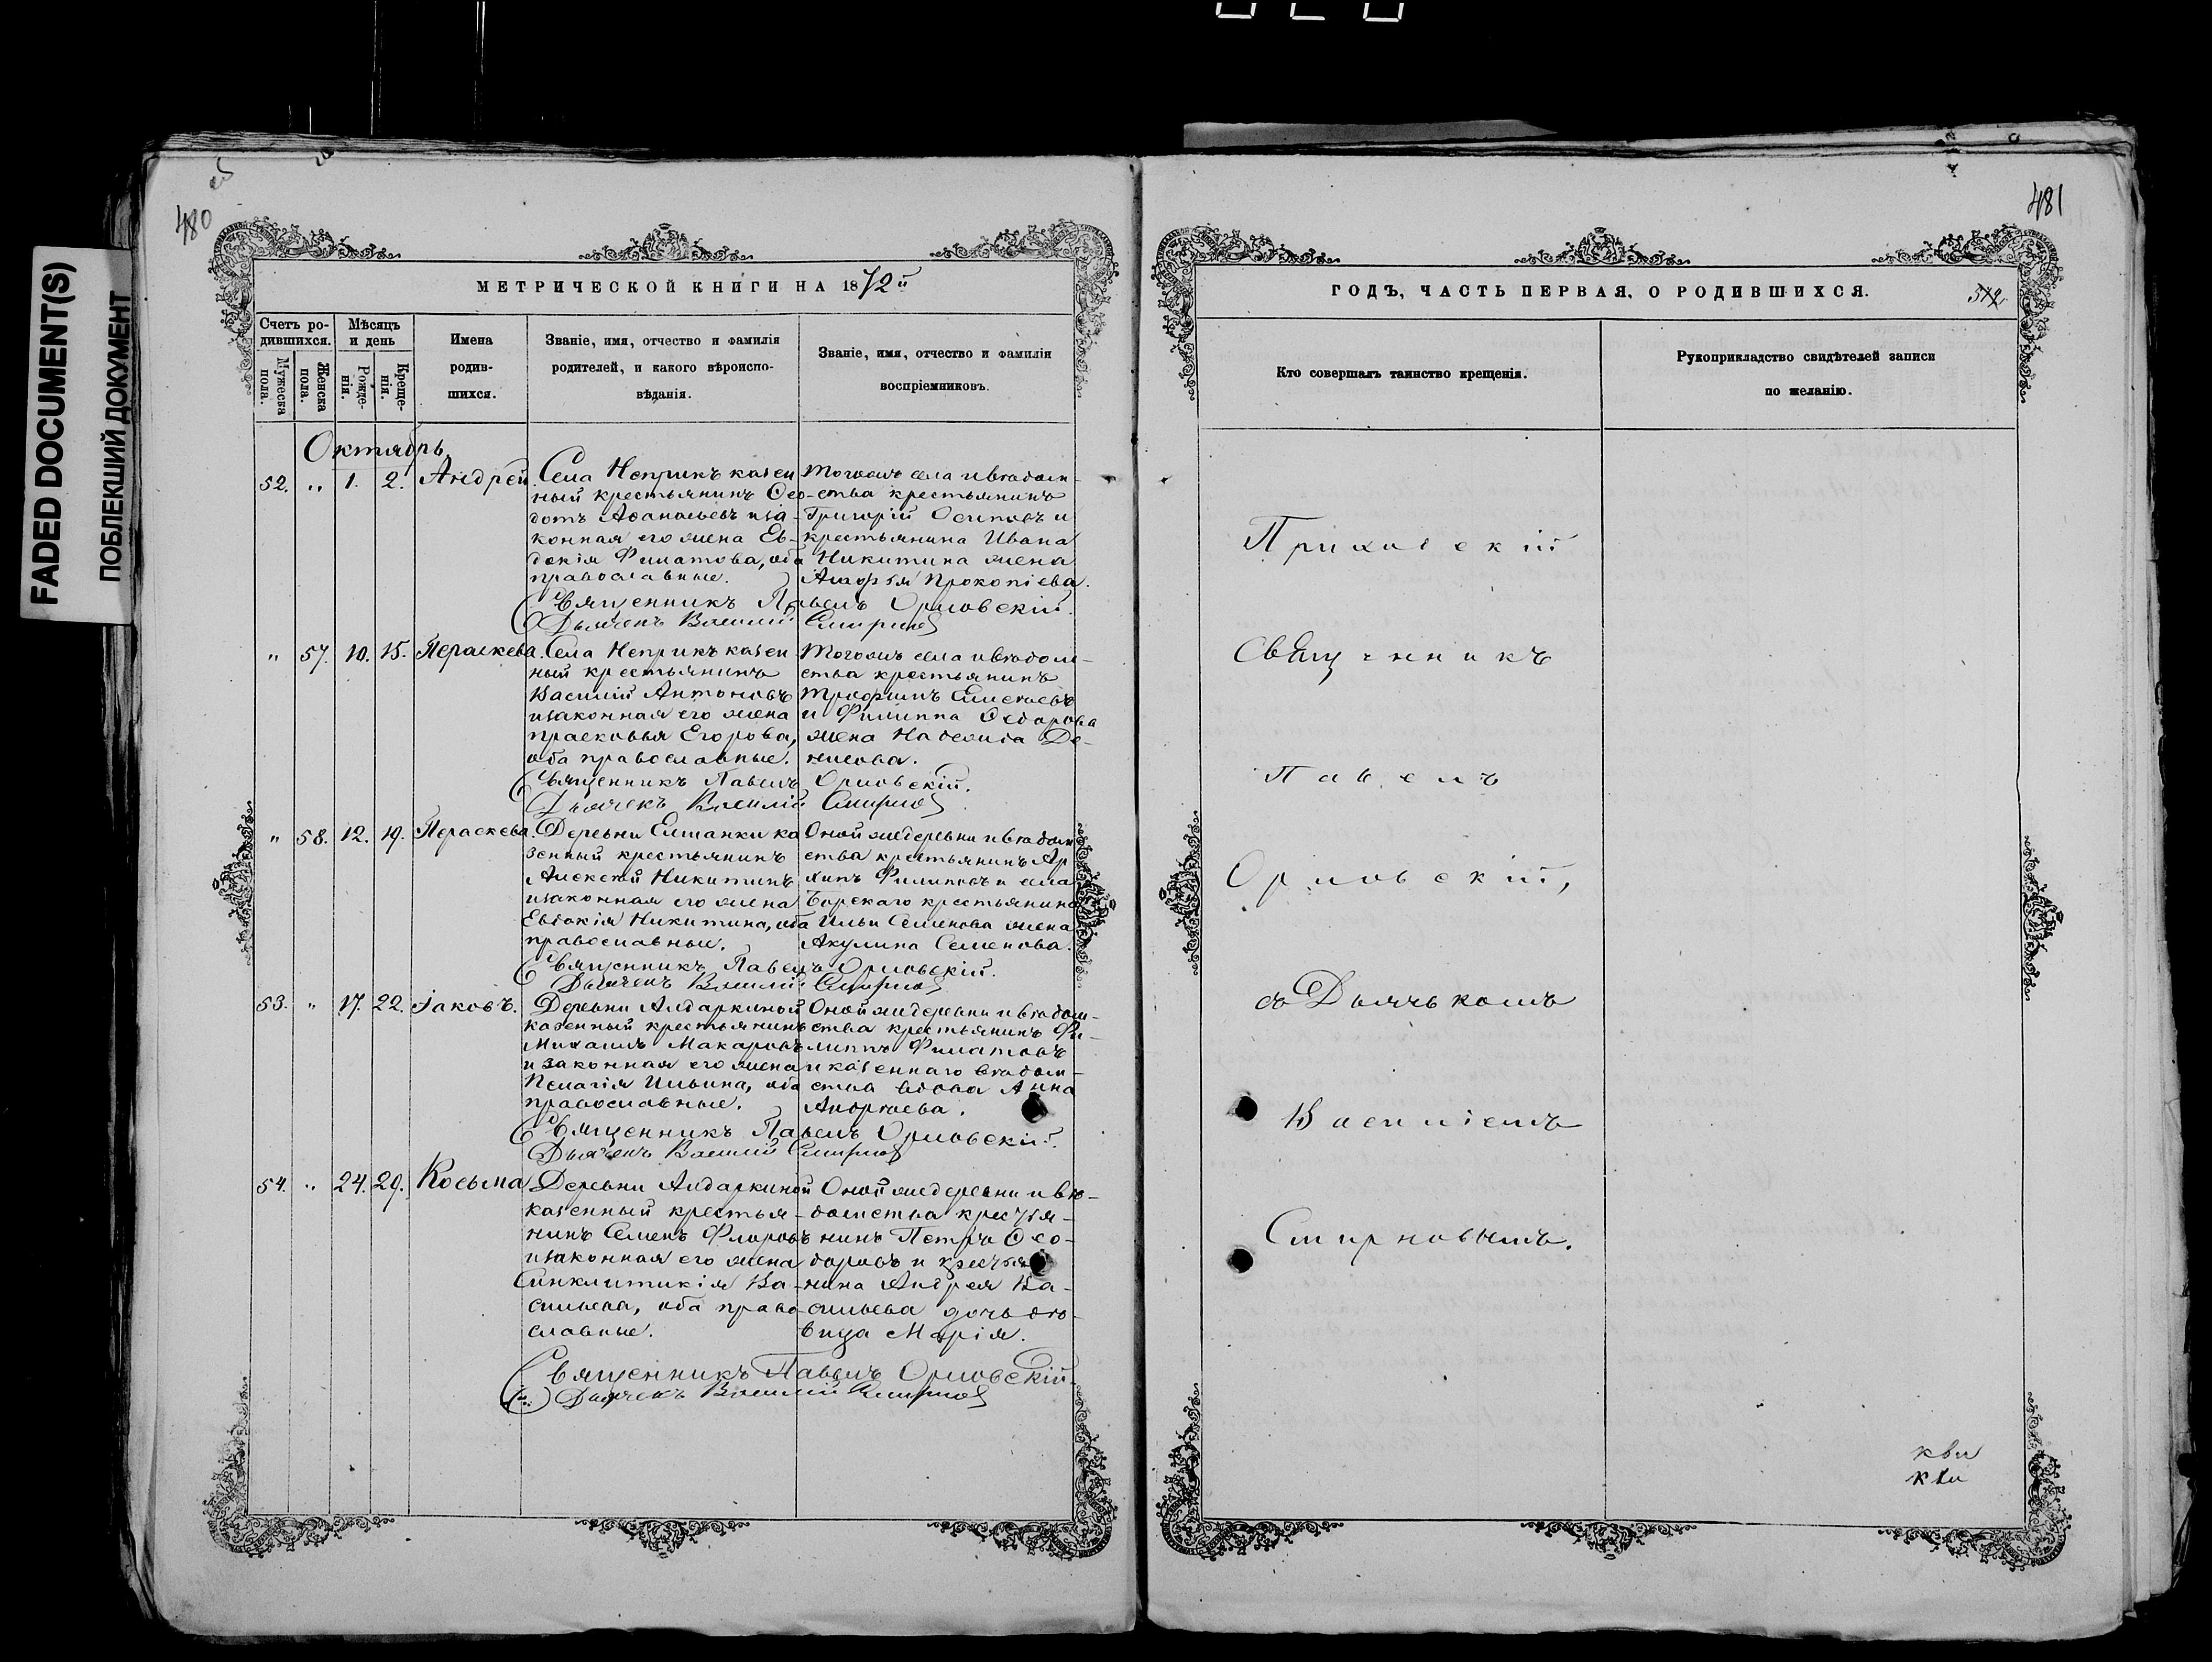 FADED DOCUMENT(S)
ПОБЛЕКШИЙ ДОКУМЕНТ
480
МЕТРИЧЕСКОЙ КНИГИ НА 1872й
Счетъ ро-
дившихся.
Мужеска пола.
Женска пола.
Мѣсяцъ
и день
Рожде-
нія.
Креще-
нія.
Имена
родив-
шихся.
Званіе, имя, отчество и фамилія
родителей, и какого вѣроиспо-
вѣданія.
Званіе, имя, отчество и фамилія
воспріемниковъ.
Октябрь.
52. „ 1. 2. Андрей.
Села Неприкъ казен
ный крестьянинъ Ѳео-
дотъ Аѳанасьевъ и за-
конная его жена Ев-
докія Филатова, оба
православные.
Тогожъ села и вѣдом-
ства крестьянинъ
Григорій Осиповъ и
крестьянина Ивана
Никитина жена
Агафья Прокопіева.
Священникъ Павелъ Орловскій.
Дьячекъ Василій Смирнов
„ 57. 10. 15. Параскева.
Села Неприкъ казен
ный крестьянинъ
Василій Антоновъ
и законная его жена
Прасковья Егорова,
оба православные.
Тогожъ села и вѣдом-
ства крестьянинъ
Трофимъ Елисѣевъ
и Филиппа Ѳедорова
жена Надежда Де-
нисова.
Священникъ Павелъ Орловскій.
Дьячекъ Василій Смирнов
„ 58. 12. 19. Параскева.
Деревни Елшанки ка
зенный крестьянинъ
Алексѣй Никитинъ
и законная его жена
Евдокія Никитина, оба
православные.
Оной же деревни и вѣдом
ства крестьянинъ Ар
хипъ Филиповъ и села
Борскаго крестьянина
Ильи Семенова жена
Акулина Семенова.
Священникъ Павелъ Орловскій.
Дьячекъ Василій Смирнов
53. „ 17. 22. Іаковъ.
Деревни Алдаркиной
казенный крестьянинъ
Михаилъ Макаровъ
и законная его жена
Пелагія Ильина, оба
православные.
Оной же деревни и вѣдом-
ства крестьянинъ Фи-
липпъ Филатовъ
и казеннаго вѣдом-
ства вдова Анна
Андреева.
Священникъ Павелъ Орловскій.
Дьячекъ Василій Смирнов
54. „ 24. 29. Косьма
Деревни Алдаркиной
казенный крестья-
нинъ Семенъ Флоровъ
и законная его жена
Синклитикія Ва-
сильева, оба право-
славные.
Оной же деревни и вѣ-
домства крестья-
нинъ Петръ Ѳео-
доровъ и крестья
нина Андрея Ва-
сильева дочь дѣ-
вица Марія.
Священникъ Павелъ Орловскій.
Дьячекъ Василій Смирнов
481
ГОДЪ, ЧАСТЬ ПЕРВАЯ, О РОДИВШИХСЯ.
Кто совершалъ таинство крещенія.
Рукоприкладство свидѣтелей записи
по желанію.
Приходскій
Священникъ
Павелъ
Орловскій,
съ Дьячькомъ
Василіемъ
Смирновымъ.